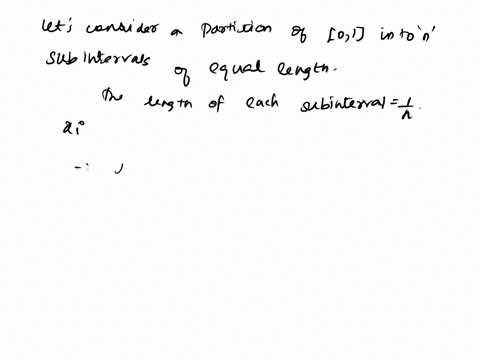 let's consider a partition of [0,1] into 'n'
subintervals of equal length.
The length of each subinterval = 1/n.
xi